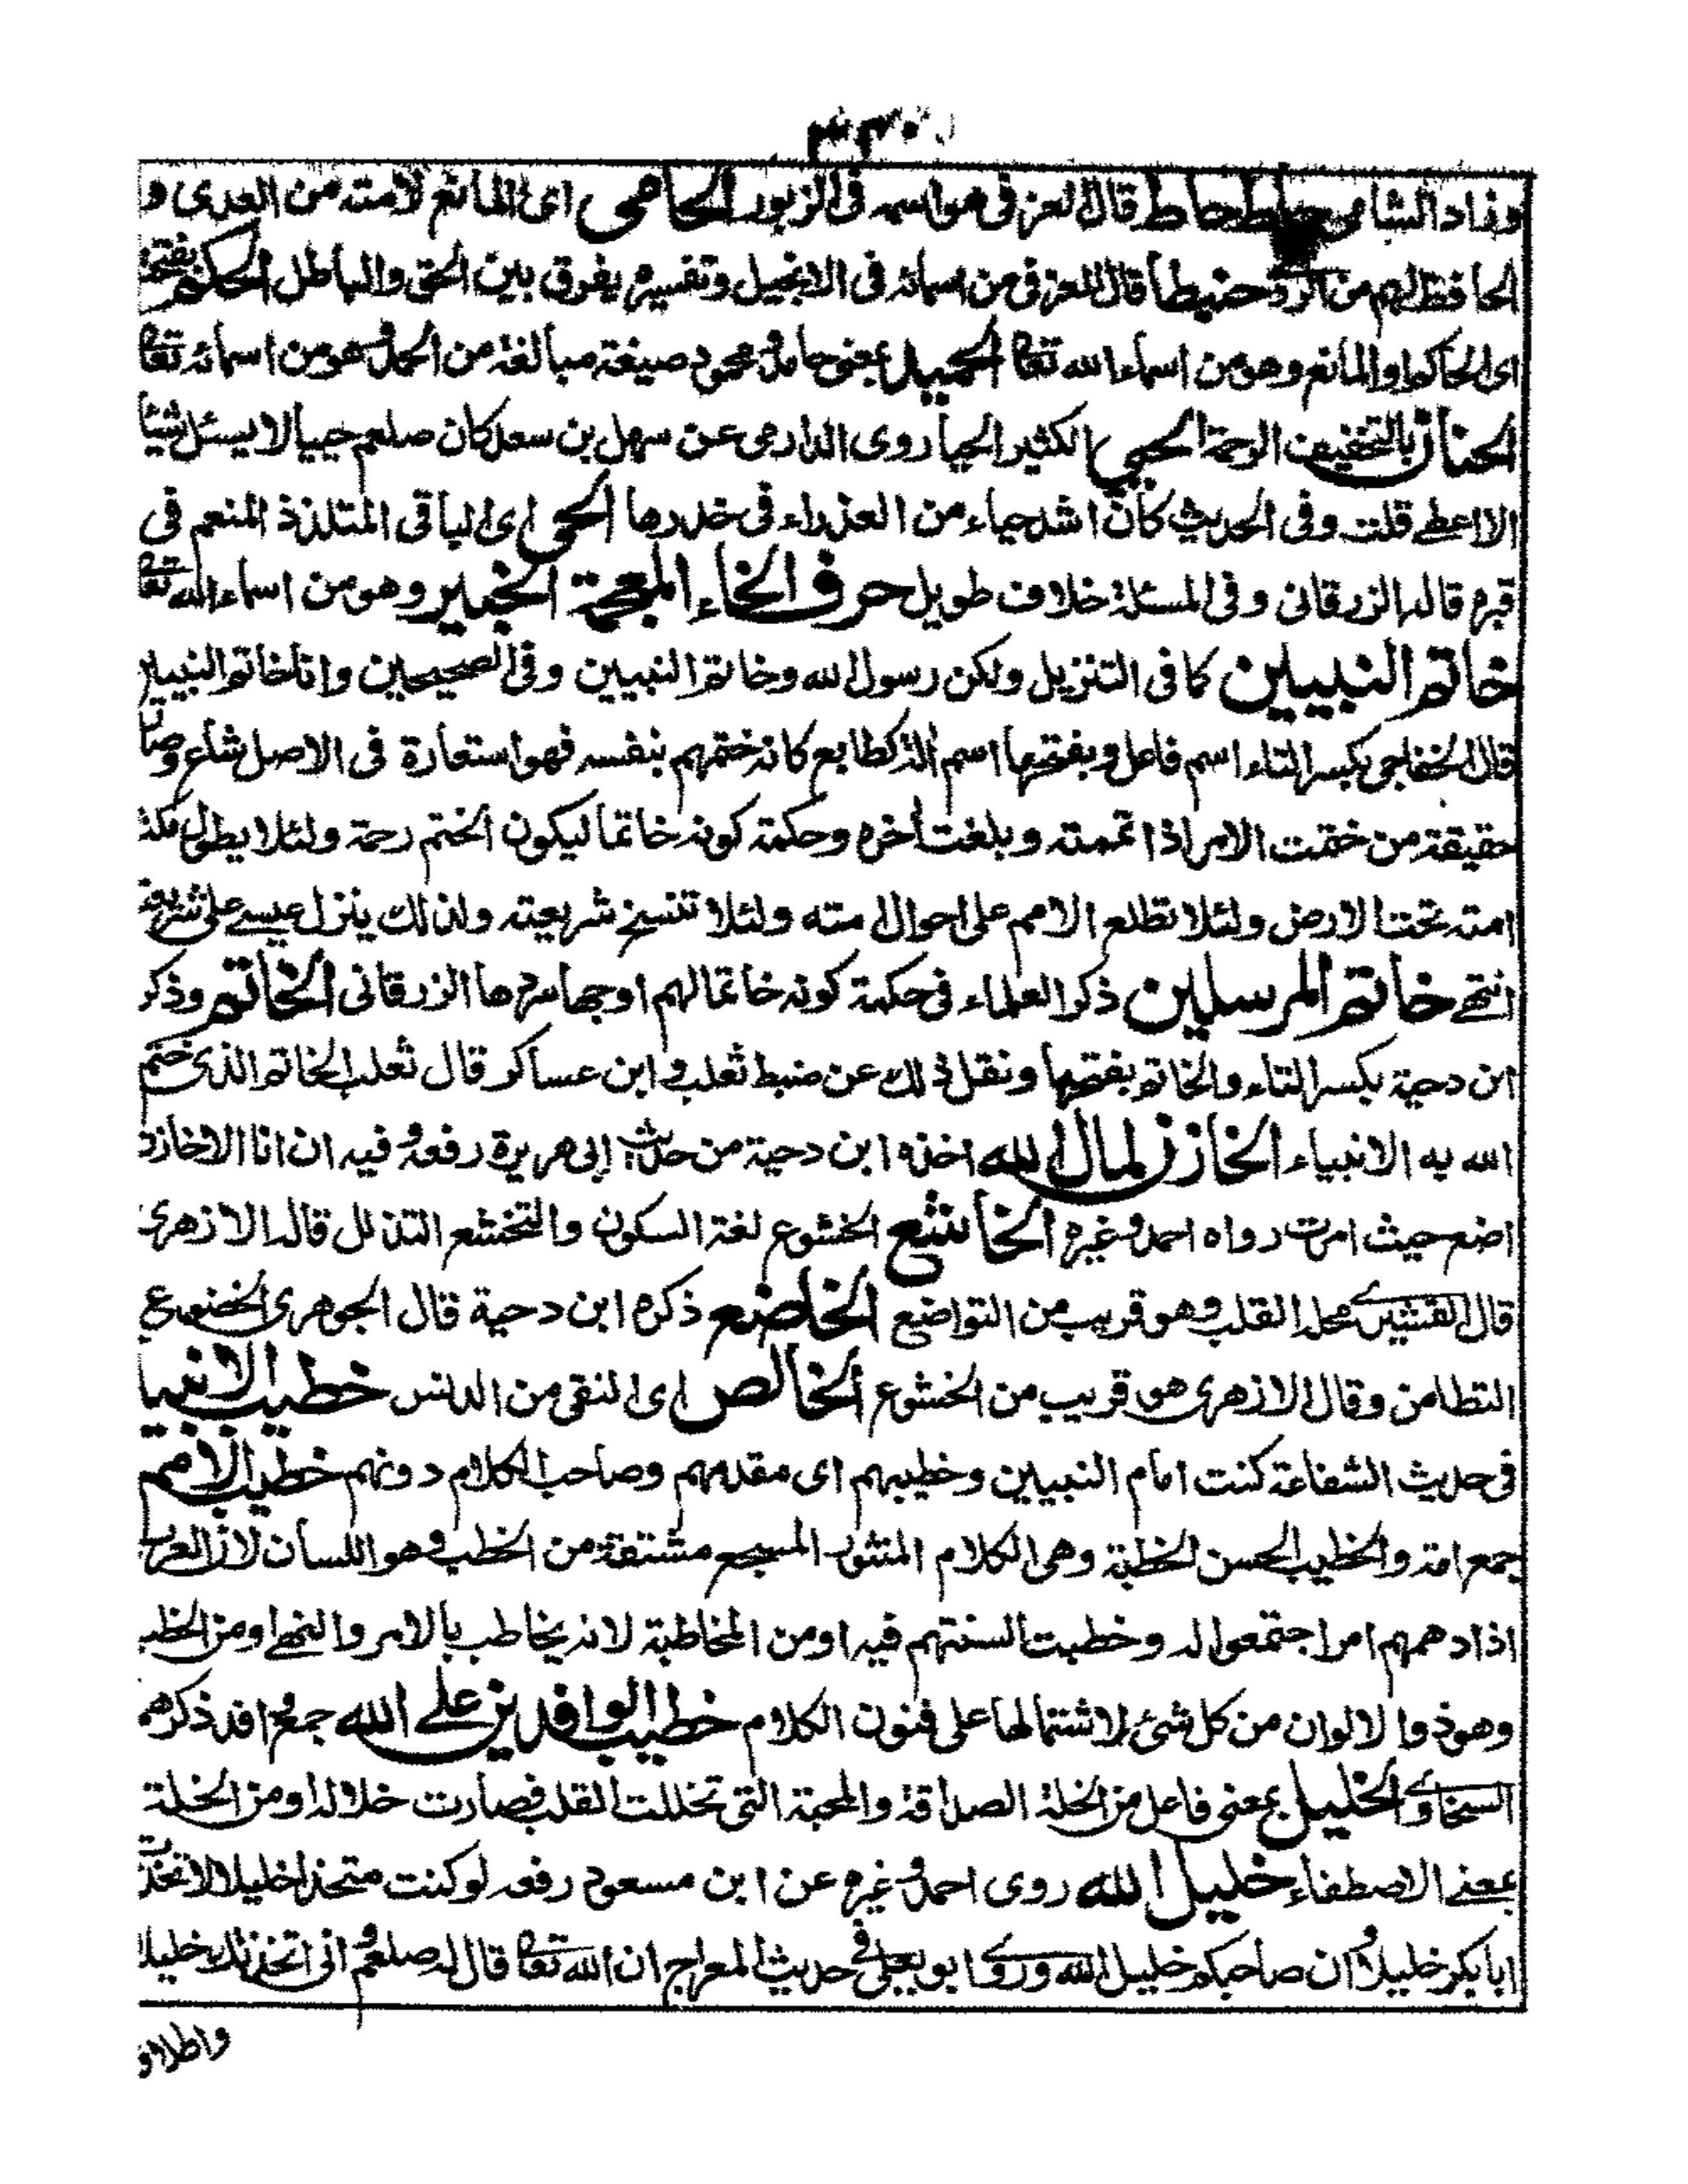 وزاد الشامى حاط حاط قال العزفى هو اسمه فى الزبور الحامى اى المانع لامته من العدى و
الحافظ لهم من الردى حنيطا قال العزفى من اسمائه فى الانجيل وتفسيره يفرق بين الحق والباطل الحكم بفتح
اى الحاكم او المانع وهو من اسماء الله تعا الحميد بمعنى حامد او محمود صيغة مبالغة من الحمد وهو من اسمائه تعا
الحنان بالتخفيف الرحمة الحيى الكثير الحيا روى الدارمى عن سهل بن سعد كان صلعم حييا لا يسئل شيئا
الا اعطى قلت وفى الحديث كان اشد حياء من العذراء فى خدرها الحى اى الباقى المتلذذ المنعم فى
قبره قاله الزرقانى وفى المسئلة خلاف طويل حرف الخاء المعجمة الخبير وهو من اسماء الله تعا
خاتم النبيين كما فى التنزيل ولكن رسول الله وخاتم النبيين وفى الصحيحين وانا خاتم النبيين
قال الخفاجى بكسر التاء اسم فاعل وبفتحها اسم الة كطابع كانه ختمهم بنفسه فهو استعارة فى الاصل شاع وصا
حقيقة من ختمت الامر اذا تممته وبلغت أخره وحكمة كونه خاتما ليكون الختم رحمة ولئلا يطول مكث
امته تحت الارض ولئلا تطلع الامم على احوال امته ولئلا تنسخ شريعته ولذلك ينزل عيسى على شريعته
انتهى خاتم المرسلين ذكر العلماء فى حكمة كونه خاتما لهم اوجها سردها الزرقانى الخاتم وذكر
ابن دحية بكسر التاء والخاتم بفتحها ونقل ذلك عن ضبط ثعلب وابن عساكر قال ثعلب الخاتم الذى ختم
الله به الانبياء الخازن لمال الله اخذه ابن دحية من حديث ابى هريرة رفعه وفيه ان انا الا خازن
اضع حيث امرت رواه احمد وغيره الخاشع الخشوع لغة السكون والتخشع التذلل قاله الازهرى
قال القشيرى محله القلب وهو قريب من التواضع الخاضع ذكره ابن دحية قال الجوهرى الخضوع
التطامن وقال الازهرى هو قريب من الخشوع الخالص اى النقى من الدنس خطيب الانبيا
فى حديث الشفاعة كنت امام النبيين وخطيبهم اى مقدمهم وصاحب الكلام دونهم خطيب الامم
جمع امة والخطيب الحسن الخطبة وهى الكلام المنثور المسجع مشتقة من الخطب وهو اللسان لان العرب
اذا دهمهم امر اجتمعوا له وخطبت السنتهم فيه او من المخاطبة لانه يخاطب بالامر والنهى او من الخطب
وهو ذو الالوان من كل شئ لاشتمالها على فنون الكلام خطيب الوافدين على الله جمع وافد ذكره
السخاوى الخليل بمعنى فاعل من الخلة الصداقة والمحبة التى تخللت القلب فصارت خلاله او من الخلة
بمعنى الاصطفاء خليل الله روى احمد وغيره عن ابن مسعود رفعه لو كنت متخذا خليلا لاتخذت
ابا بكر خليلا وان صاحبكم خليل الله وروى ابو يعلى فى حديث المعراج ان الله تعا قال له صلعم انى اتخذتك خليلا
واطلاق